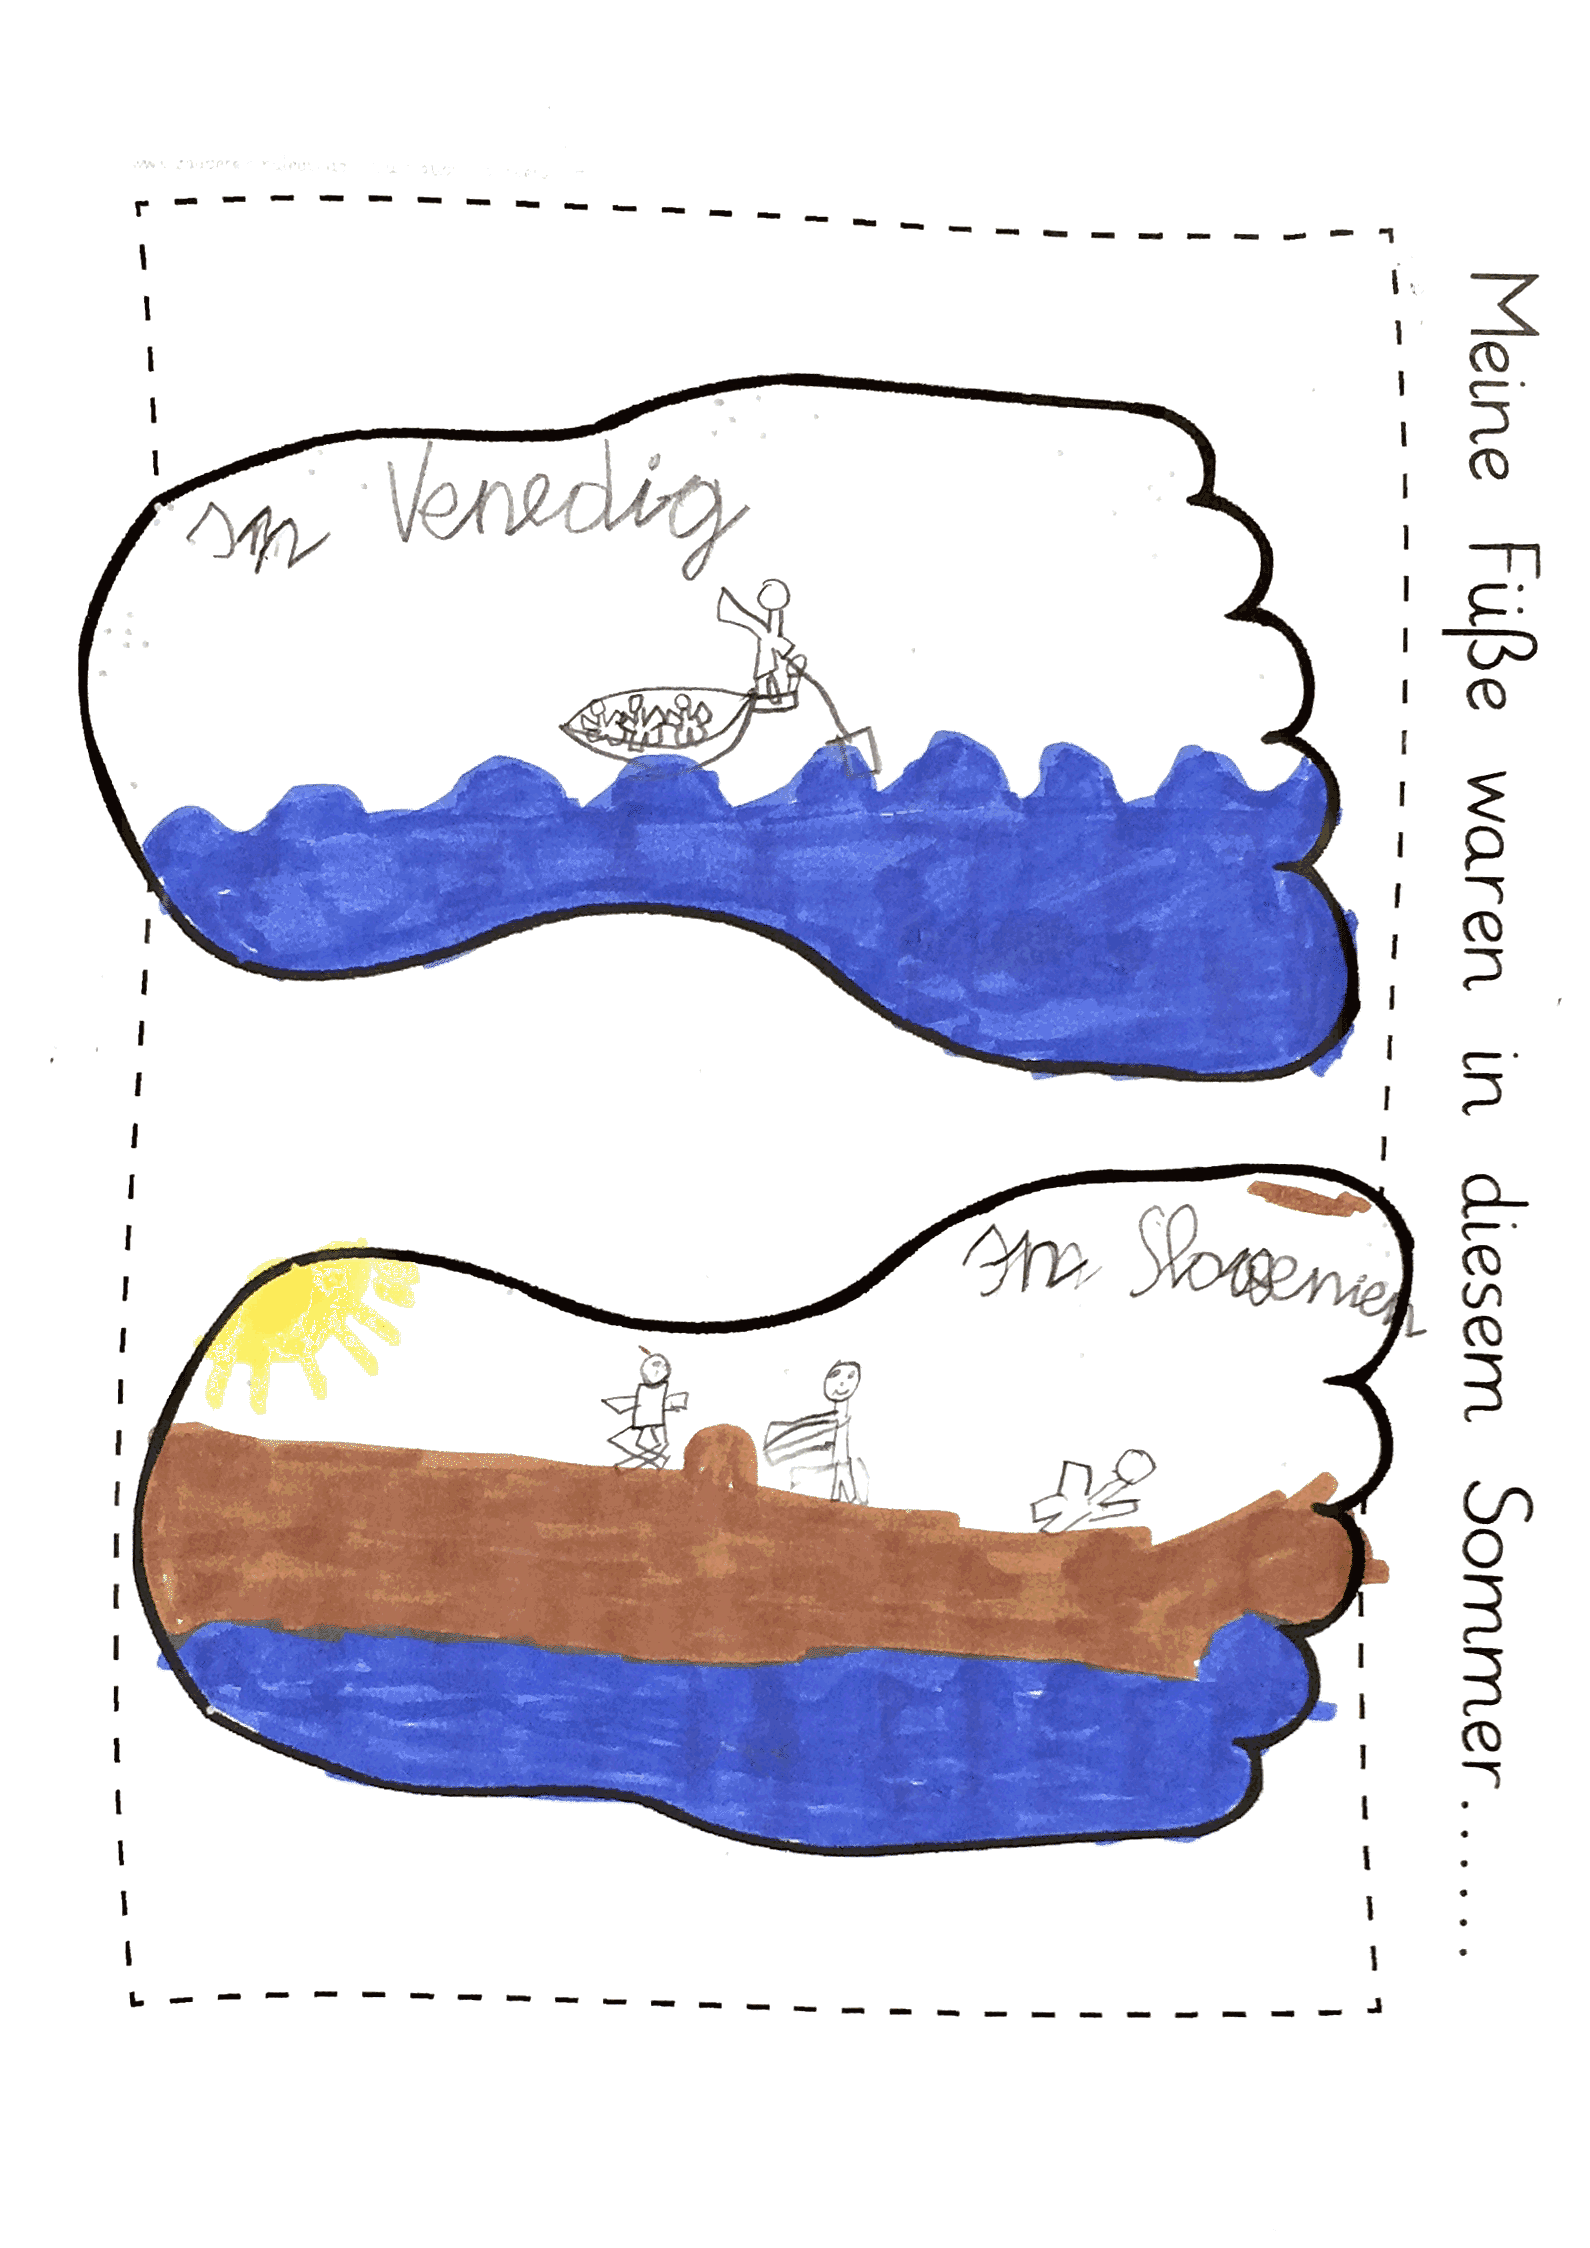 Meine Füße waren in diesem Sommer.......
In Venedig
In Slowenien